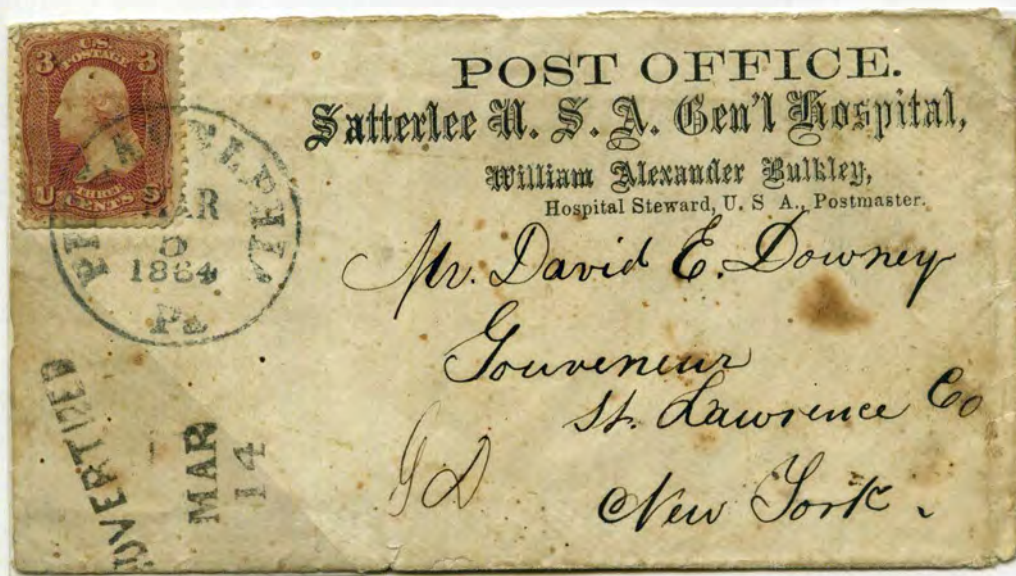 3 U.S. 3
POSTAGE
U THREE S
CENTS
PHILADELPHIA
MAR
5
1864
Pa
POST OFFICE.
Satterlee U. S. A. Gen'l Hospital,
William Alexander Bulkley,
Hospital Steward, U. S A., Postmaster.
Mr. David E. Downey
Gouveneur
St. Lawrence Co
New York.
ADVERTIZED
MAR
14